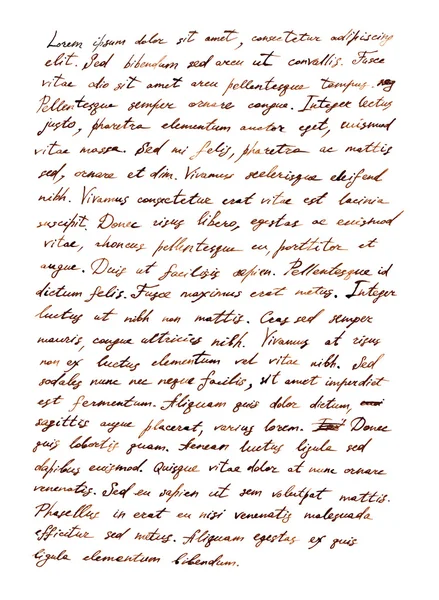 Lorem ipsum dolor sit amet, consectetur adipiscing
elit. Sed bibendum sed arcu ut convallis. Fusce
vitae odio sit amet arcu pellentesque tempus.
Pellentesque semper ornare congue. Integer lectus
justo, pharetra elementum auctor eget, euismod
vitae massa. Sed mi felis, pharetra ac mattis
sed, ornare et dim. Vivamus scelerisque eleifend
nibh. Vivamus consectetur erat vitae est lacinia
suscipit. Donec risus libero, egestas ac euismod
vitae, rhoncus pellentesque eu, porttitor et
augue. Duis at facilisis sapien. Pellentesque id
dictum felis. Fusce maximus erat metus. Integer
luctus ut nibh non mattis. Cras sed semper
mauris, congue ultricies nibh. Vivamus at risus
non ex luctus elementum vel vitae nibh. Sed
sodales nunc nec neque facilis, sit amet imperdiet
est fermentum. Aliquam quis dolor dictum,
sagittis augue placerat, varius lorem. Donec
quis lobortis quam. Aenean luctus ligula sed
dapibus euismod. Quisque vitae dolor at nunc ornare
venenatis. Sed eu sapien ut sem volutpat mattis.
Phasellus in erat eu nisi venenatis malesuada
efficitur sed metus. Aliquam egestas ex quis
ligula elementum bibendum.